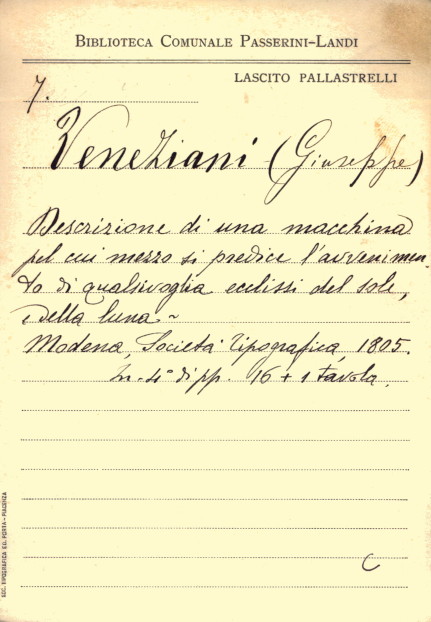 BIBLIOTECA COMUNALE PASSERINI-LANDI
LASCITO PALLASTRELLI
7.
Veneziani (Giuseppe)
Descrizione di una macchina
pel cui mezzo si predice l'avvenimen-
to di qualsivoglia ecclissi del sole,
e della luna~
Modena, Società Tipografica, 1805.
In-4° di pp. 16 + 1 tavola.
C
SOC. TIPOGRAFICA ED. PORTA - PIACENZA